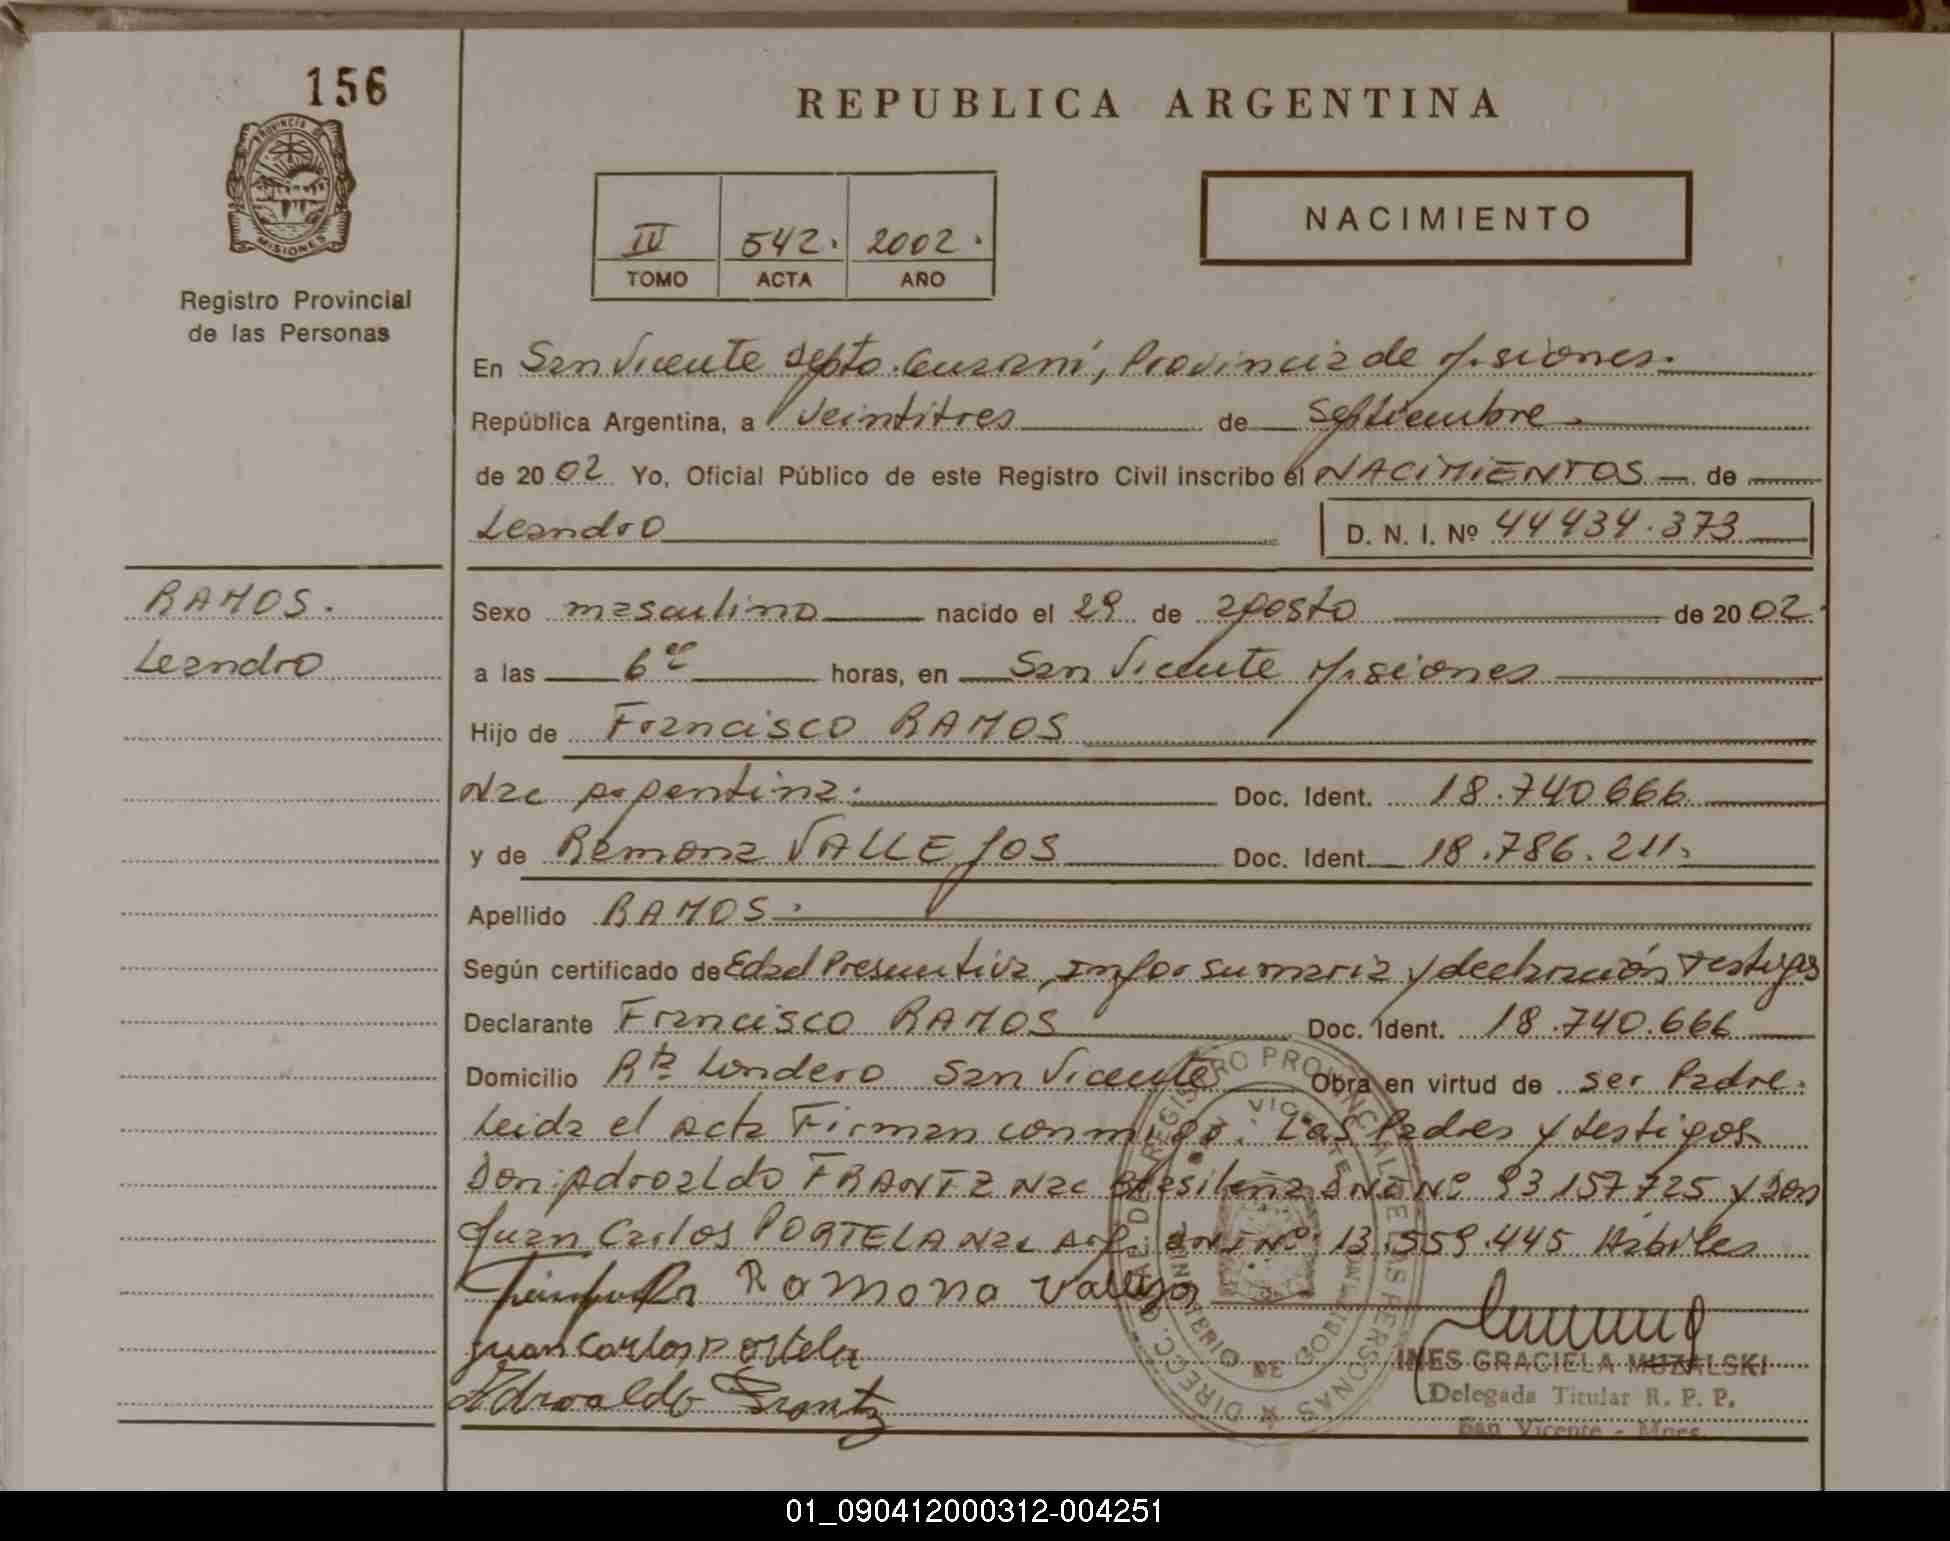 156
REPUBLICA ARGENTINA
PROVINCIA DE
MISIONES
Registro Provincial
de las Personas
IV 542. 2002.
TOMO ACTA AÑO
NACIMIENTO
En San Vicente Depto. Guaraní, Provincia de Misiones.
República Argentina, a Veintitres de Septiembre.
de 2002 Yo, Oficial Público de este Registro Civil inscribo el NACIMIENTOS de
Leandro D. N. I. Nº 44434.373
RAMOS.
Leandro
Sexo masculino nacido el 29 de agosto de 2002.
a las 6 horas, en San Vicente Misiones
Hijo de Francisco RAMOS
Nac Argentina. Doc. Ident. 18.740666
y de Ramona VALLEJOS Doc. Ident. 18.786.211.
Apellido RAMOS.
Según certificado de Edad Presuntiva, Infor sumaria y declaración testigos
Declarante Francisco RAMOS Doc. Ident. 18.740.666
Domicilio Rta Londero San Vicente Obra en virtud de ser Padre.
Leida el acta Firman conmigo. Las Padres y testigos
Don: Adroaldo FRANTZ Nac Brasileña DNI Nº 93157725 y Don
Juan Carlos PORTELA Nac Arg. DNI Nº 13.559.445 Habiles
Ramona Vallejo
Juan Carlos Portela
Adroaldo Frantz
DIRECC. GRAL. DE REGISTRO PROVINCIAL DE LAS PERSONAS
SAN VICENTE
MINISTERIO DE GOBIERNO
INES GRACIELA MUZALSKI
Delegada Titular R. P. P.
San Vicente - Mnes.
01_090412000312-004251